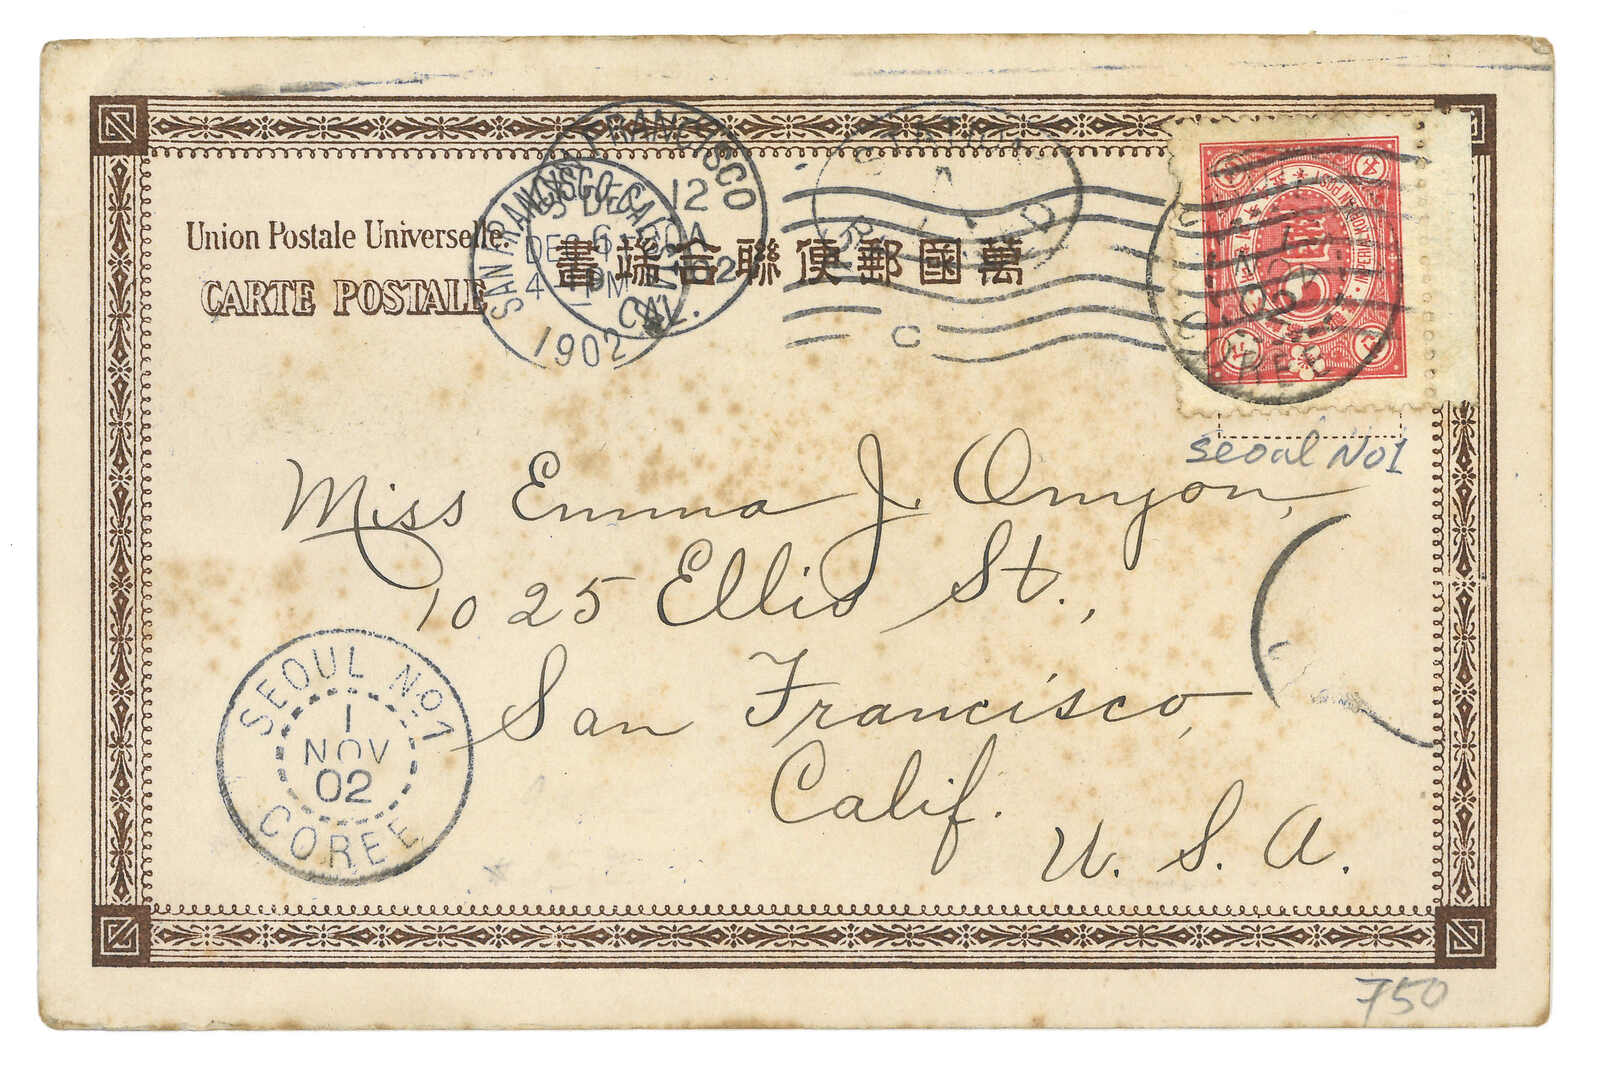 Union Postale Universelle.
CARTE POSTALE
萬國郵便聯合端書
SAN FRANCISCO CAL.
DEC
4 PM
1902
SAN FRANCISCO
CAL.
12
C
IMPERIAL KOREAN POST
COREE
Seoul No1
Miss Emma J. Omyon,
1025 Ellis St.,
San Francisco,
Calif.
U. S. A.
SEOUL No 1
1
NOV
02
COREE
750